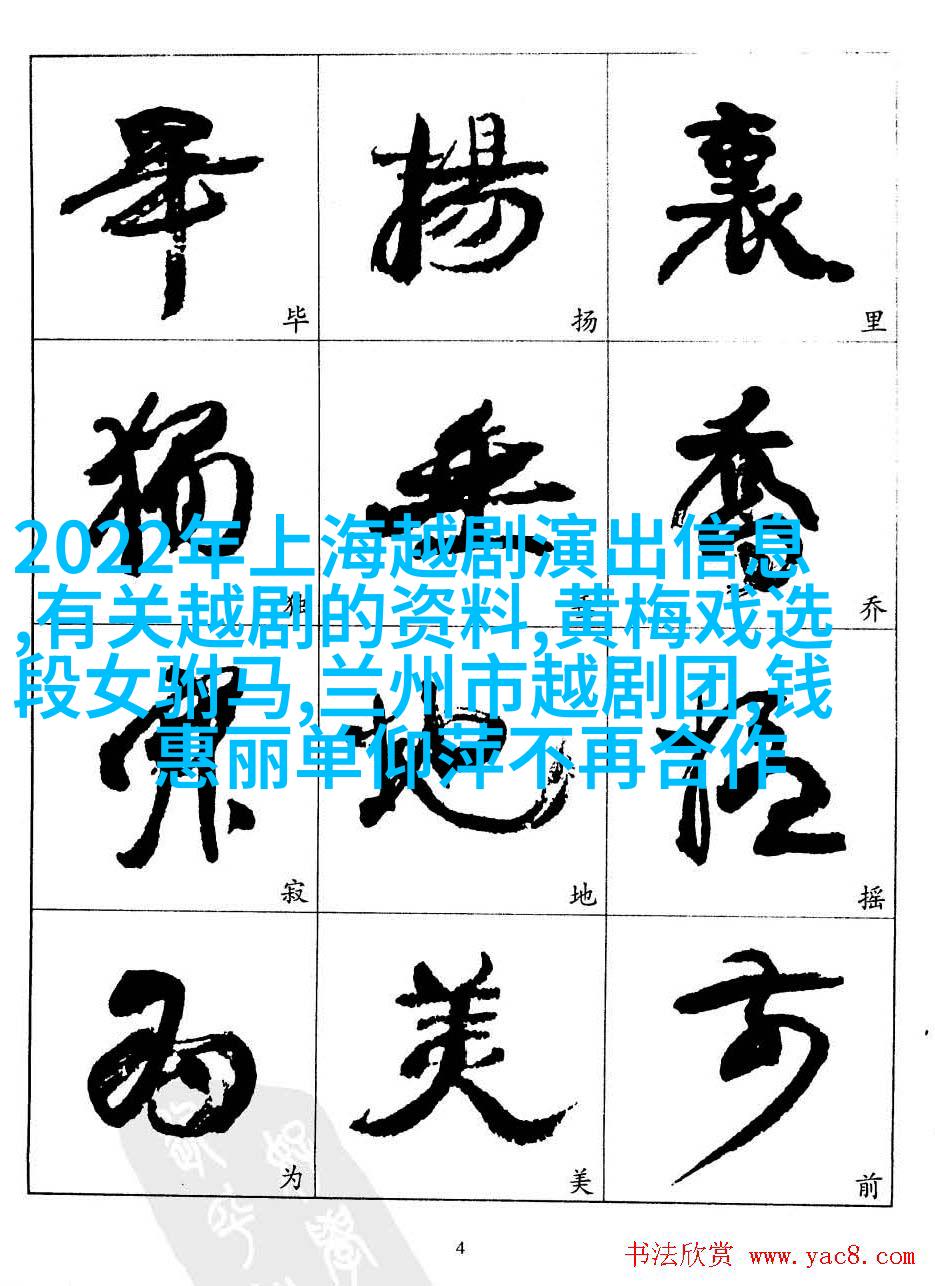 畢 揚 裏
毕 扬 里
獨 垂 喬
2022年上海越剧演出信息
独 乔
,有关越剧的资料,黄梅戏选
段女驸马,兰州市越剧团,钱
惠丽单仰萍不再合作
地 摇
寂 地 摇
为 美 前
为 美 前
4
书法欣赏 www.yac8.com